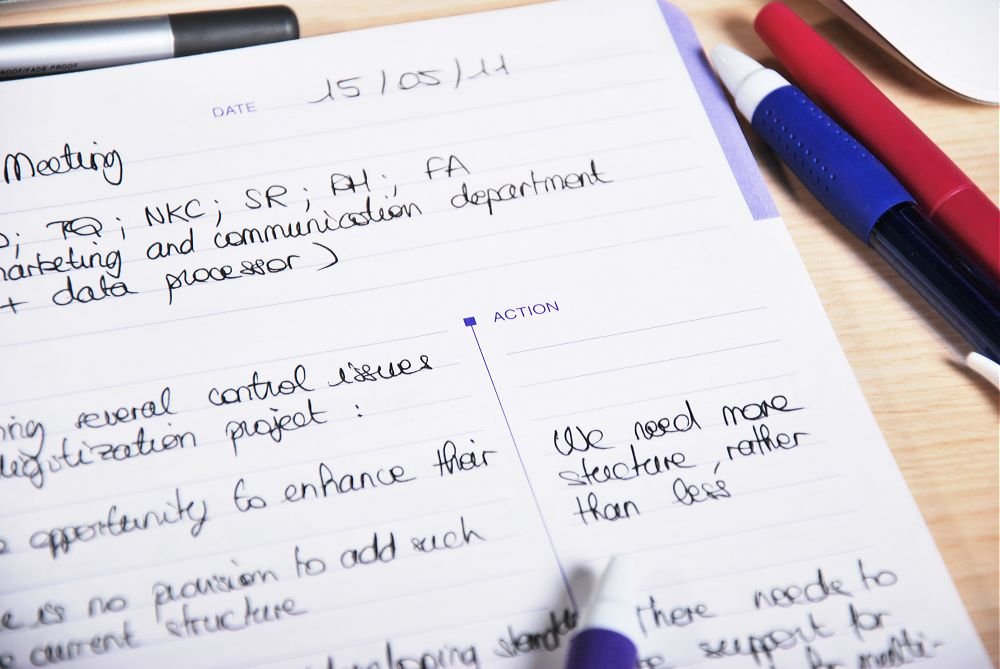 PROOF/FADE-PROOF
DATE 15/05/11
Meeting
; TQ; NKC; SR; RH; FA
marketing and communication department
+ data processor)
ACTION
several control issues
project :
opportunity to enhance their
is no provision to add such
current structure
We need more
structure, rather
than less
there needs to
support for